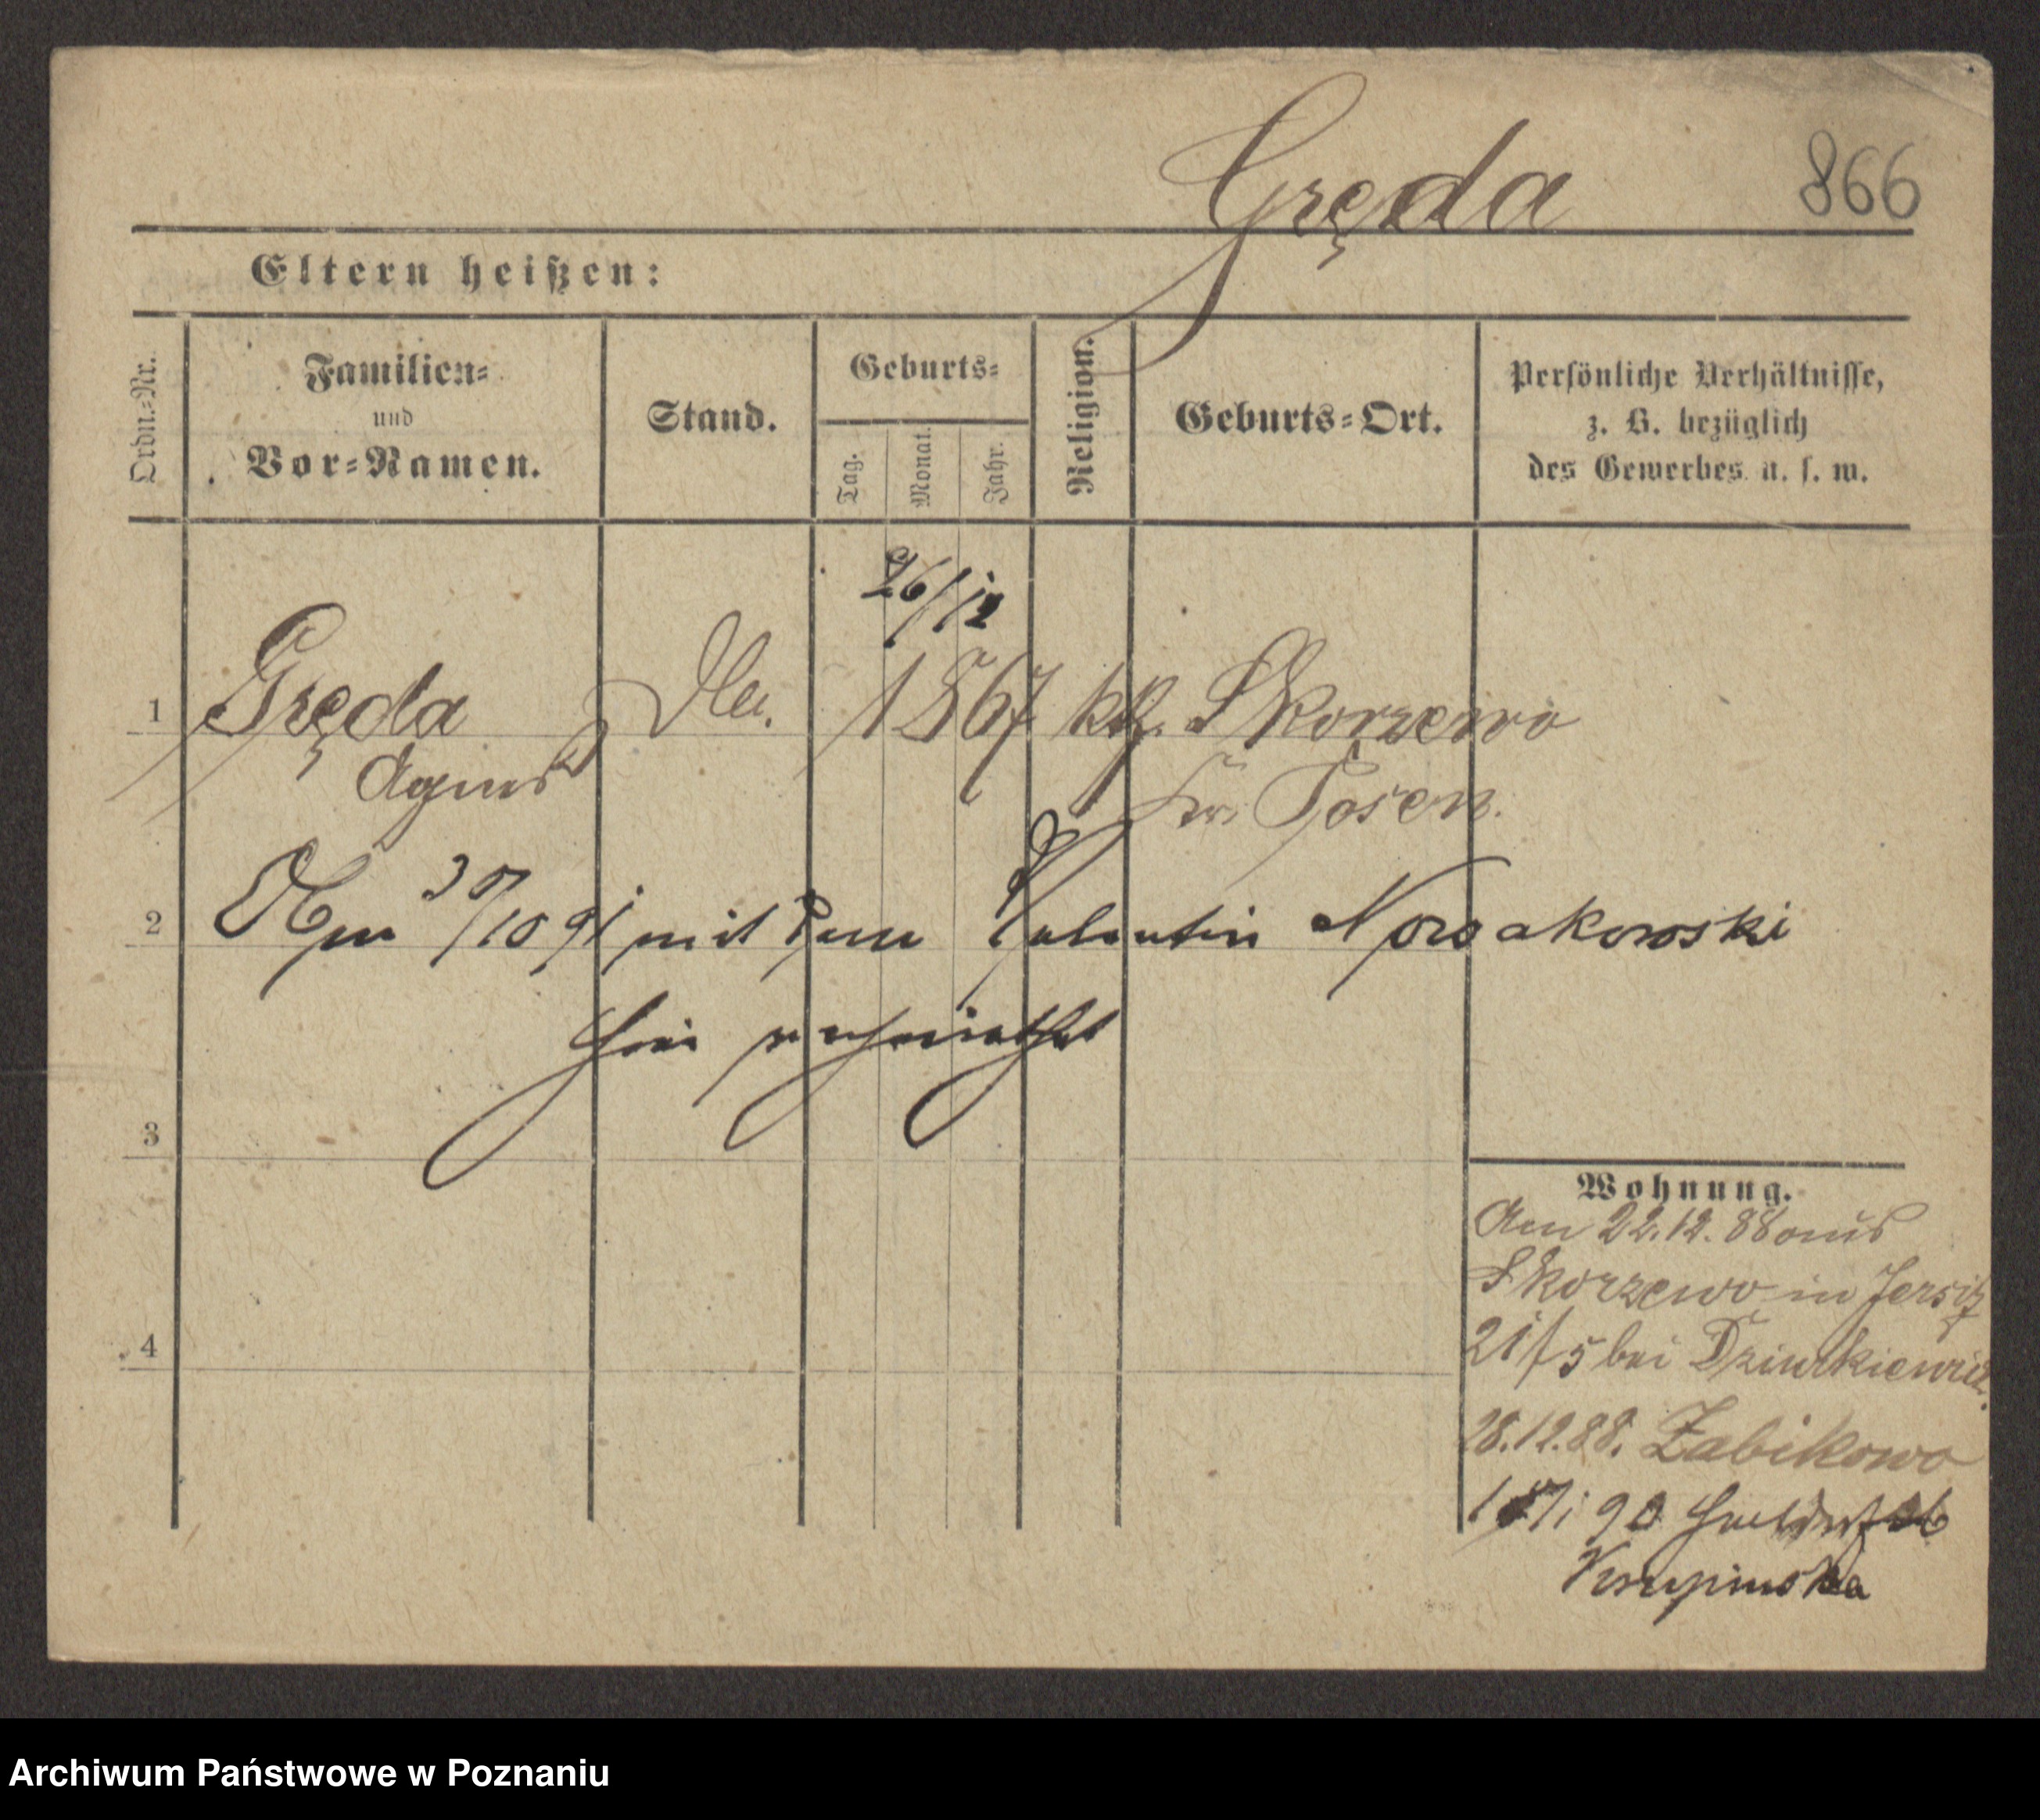 Gręda 866
Eltern heißen:
Ordn.-Nr.
Familien-
und
Vor-Namen.
Stand.
Geburts-
Tag.
Monat.
Jahr.
Religion.
Geburts-Ort.
Persönliche Verhältnisse,
z. B. bezüglich
des Gewerbes u. s. w.
26/12
1 Gręda 1867 kth. Skorzewo
Agnes Kr. Posen.
2 Am 30/10 91 mit dem Valentin Nowakowski
hier verheirathet
3
4
Wohnung.
Am 22.12.88 aus
Skorzewo in Jersitz
21/5 bei
28.12.88. Zabikowo
90
Krupinska
Archiwum Państwowe w Poznaniu